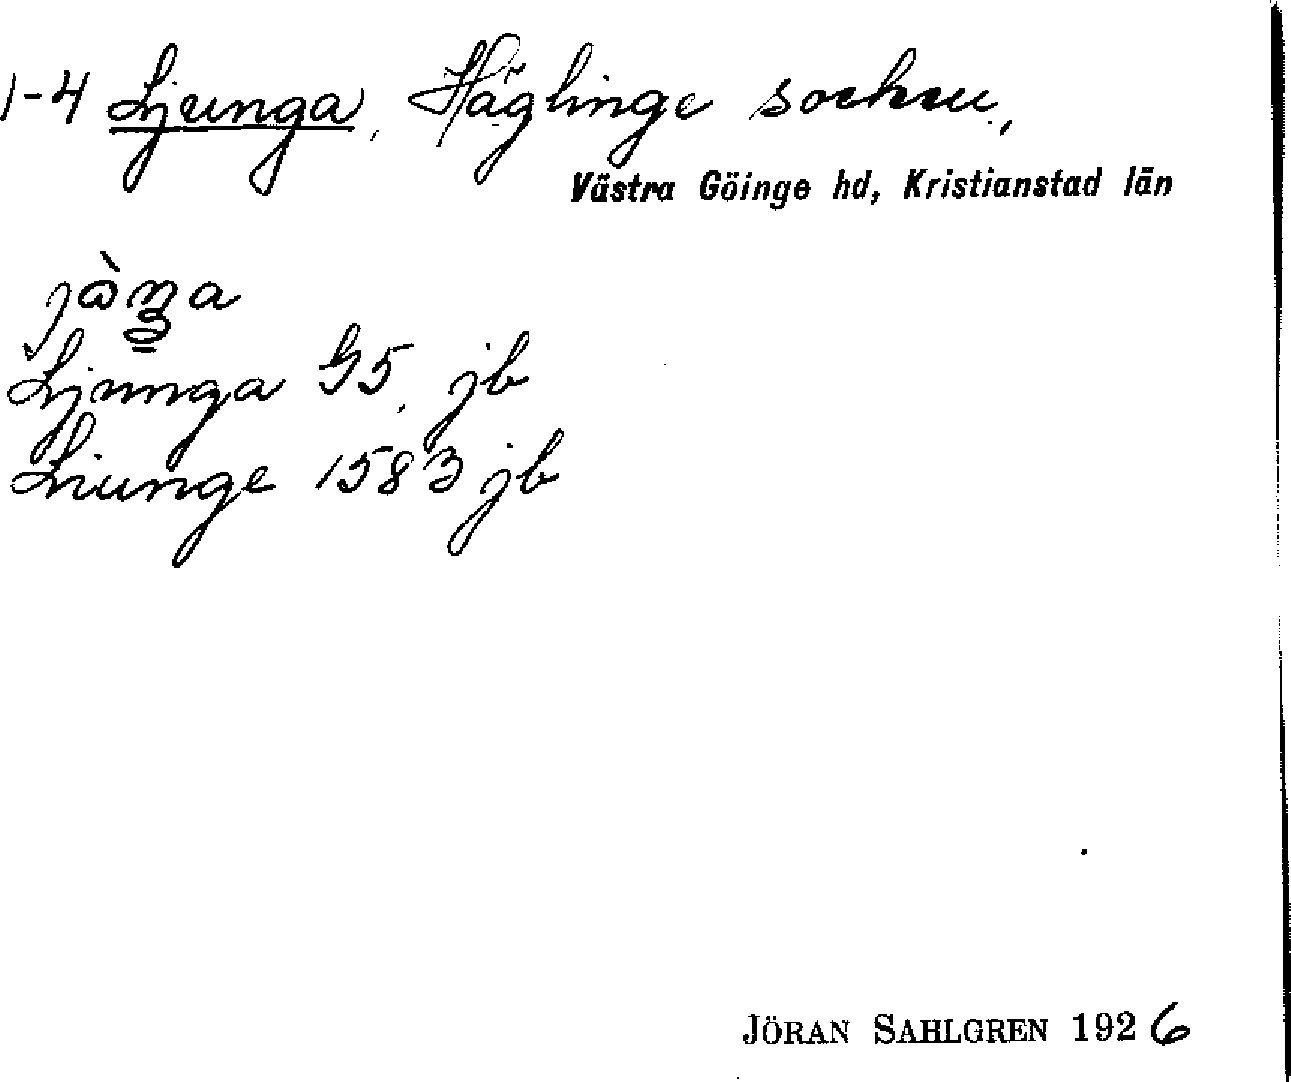 1-4 Ljunga, Häglinge socken,
Västra Göinge hd, Kristianstad län
Ljunga G5, jb
Liunge 1583 jb
JÖRAN SAHLGREN 1926